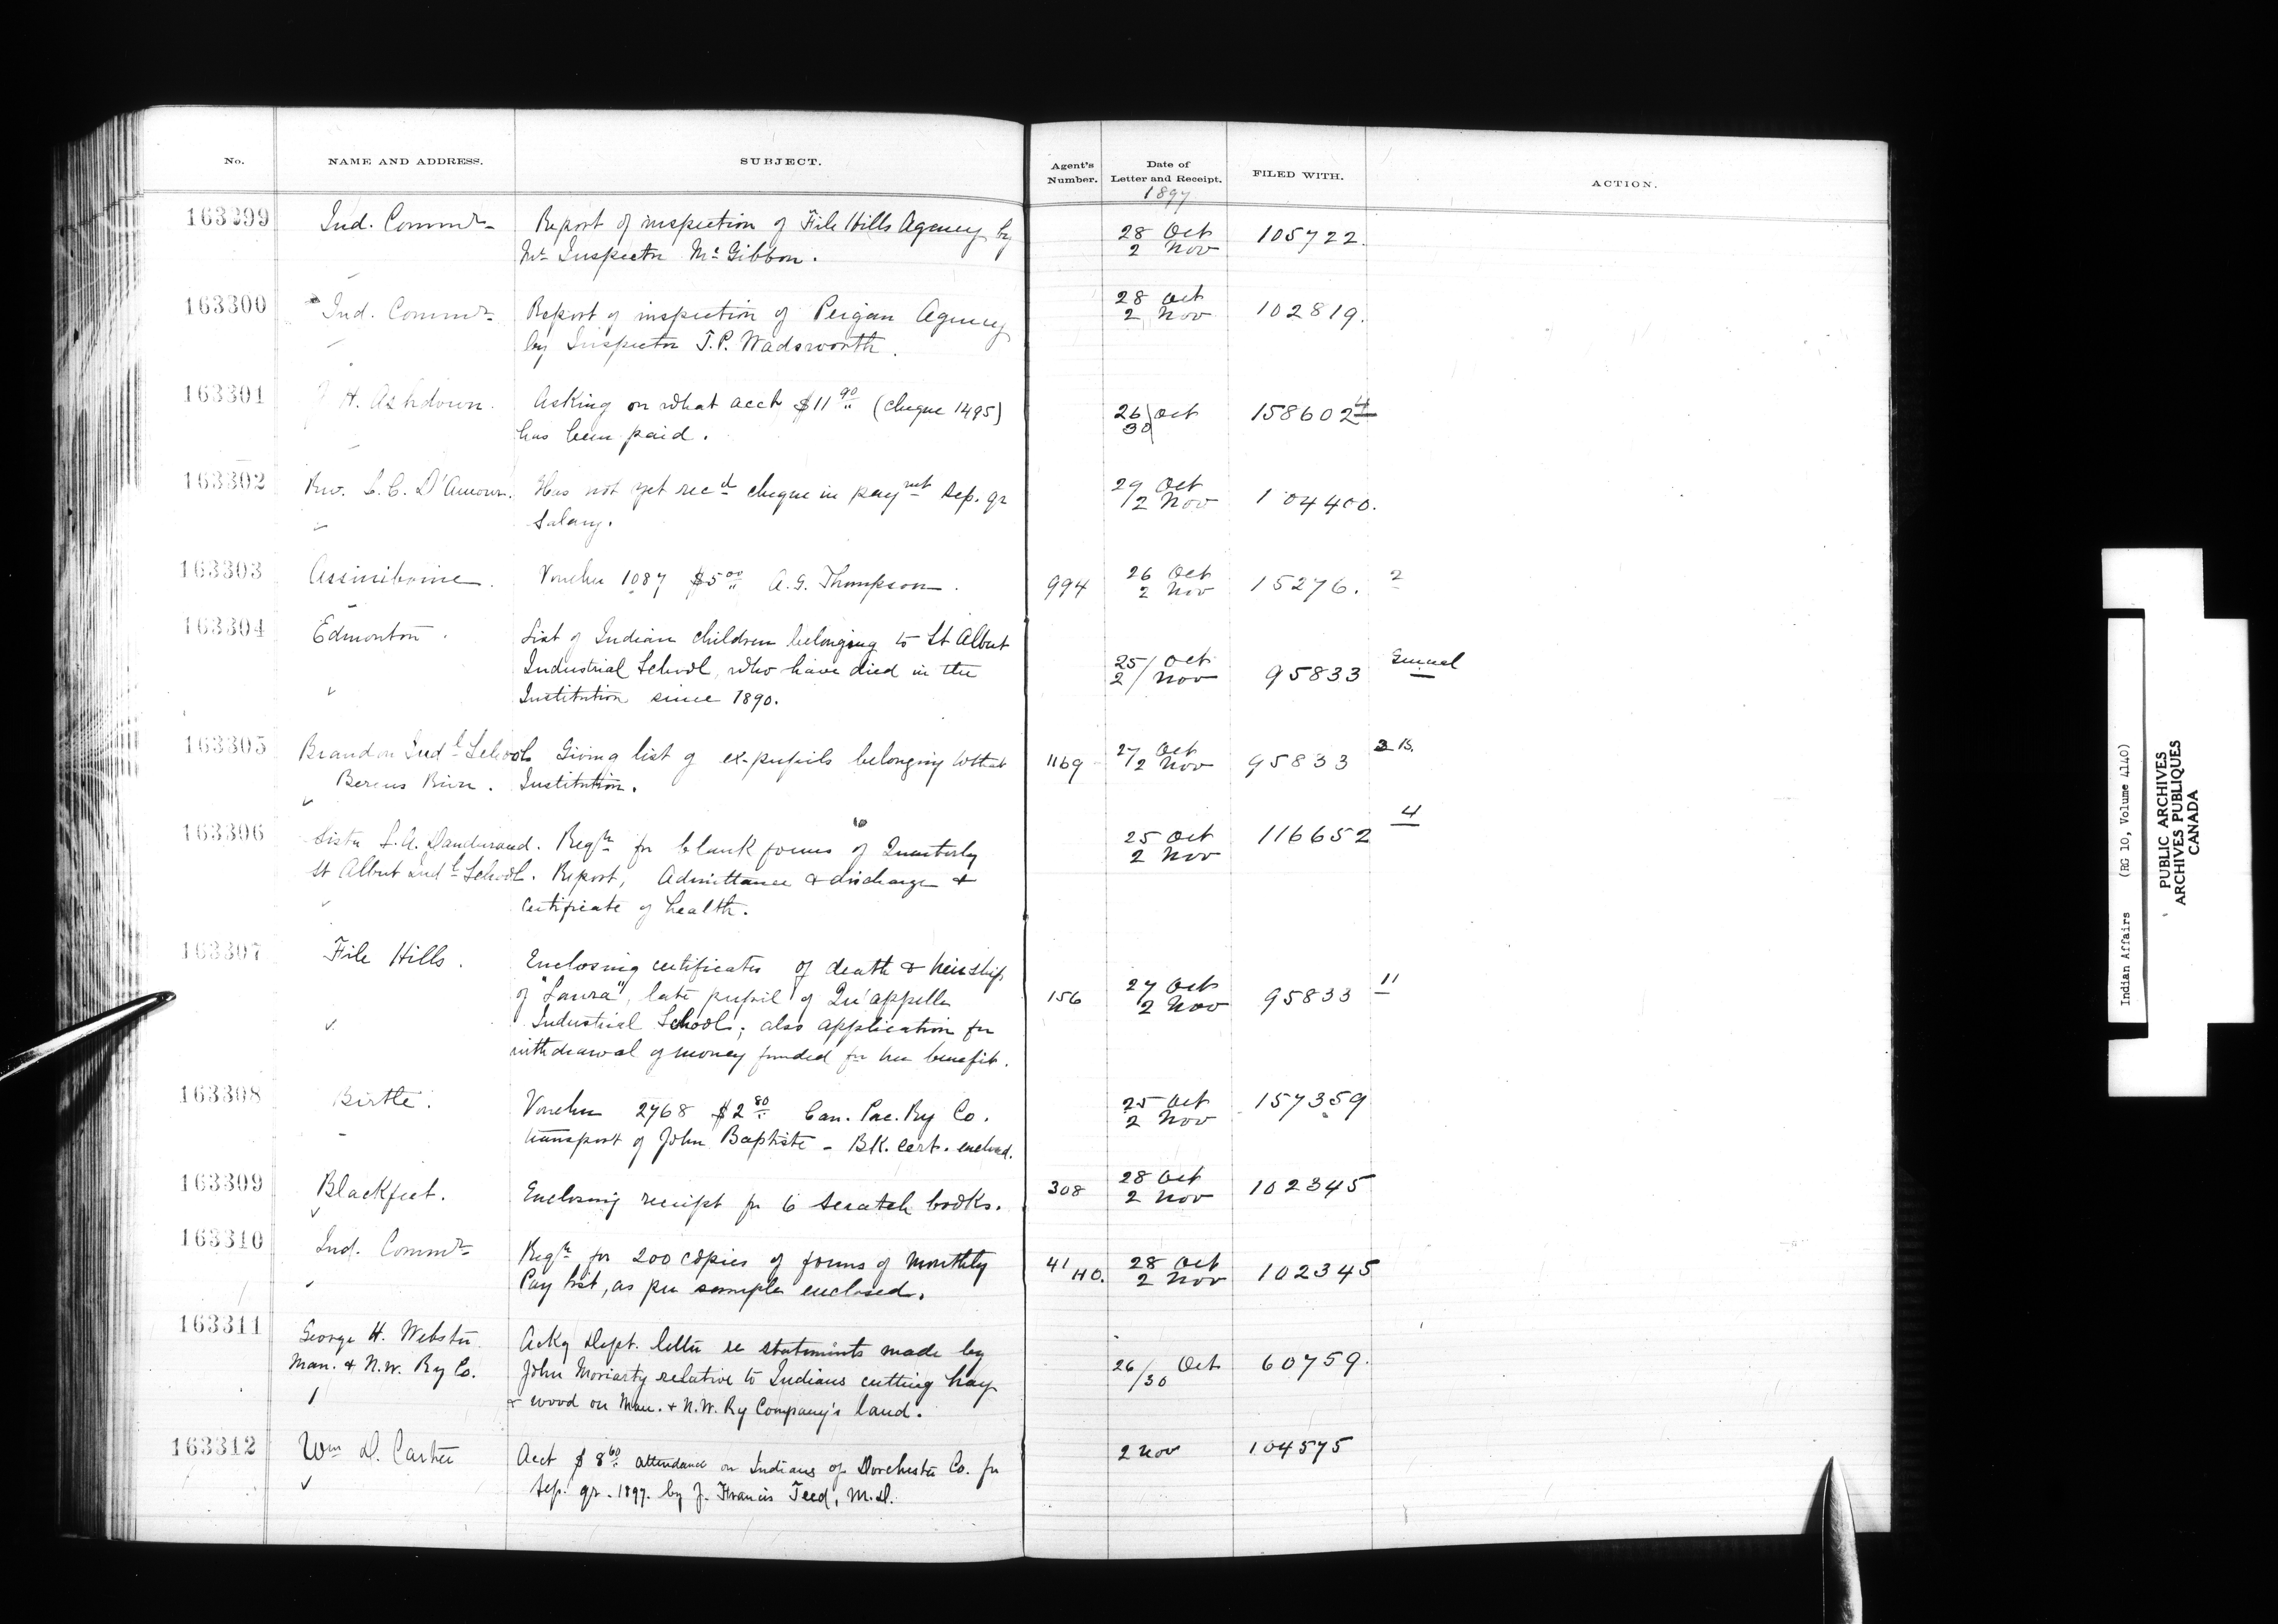 No. NAME AND ADDRESS. SUBJECT. Agent's Number. Date of Letter and Receipt. FILED WITH. ACTION.
1897
163299 Ind. Commr Report of inspection of File Hills Agency by 28 Oct 105722.
Mr Inspector McGibbon. 2 Nov
163300 Ind. Commr Report of inspection of Peigan Agency 28 Oct 102819.
by Inspector T.P. Wadsworth. 2 Nov
163301 H. Ashdown. Asking on what acct $11 90 (cheque 1495) 26 Oct 158602 4
has been paid. 30
163302 Rev. D'Amour. Has not yet recd cheque in paymt Sep. qr 29 Oct 104400.
salary. 2 Nov
163303 Assiniboine. Voucher 1087 $5 00 A.G. Thompson. 994 26 Oct 15276. 2
2 Nov
163304 Edmonton. List of Indian children belonging to St Albert
Industrial School, who have died in the 25/ Oct 95833
Institution since 1890. 2/ Nov
163305 Brandon Indl School Giving list of ex-pupils belonging to that 1169 27 Oct 95833 2 B.
Berens River. Institution. 2 Nov
163306 Sister L.A. Dandurand. Reqn for blank forms of Quarterly 25 Oct 116652 4
St Albert Indl School. Report, Admittance & discharge & 2 Nov
Certificate of health.
163307 File Hills. Enclosing certificates of death & heirship
of "Laura", late pupil of Qu'appelle 156 27 Oct 95833 11
Industrial School; also application for 2 Nov
withdrawal of money funded for her benefit.
163308 Birtle. Voucher 2768 $2 80 Can. Pac. Ry Co. 25 Oct 157359
transport of John Baptiste - BK. Cert. enclosed. 2 Nov
163309 Blackfeet. Enclosing receipt for 6 scratch books. 308 28 Oct 102345
2 Nov
163310 Ind. Commr Reqn for 200 copies of forms of Monthly 41 HO. 28 Oct 102345
Pay list, as per sample enclosed. 2 Nov
163311 George H. Webster. Ackg Dept. letter re statements made by
Man. & N.W. Ry Co. John Moriarty relative to Indians cutting hay 26/30 Oct 60759.
& wood on Man. & N.W. Ry Company's land.
163312 Wm D. Carter Acct $8 60 attendance on Indians of Dorchester Co. for 2 Nov 104575
Sep. qr. 1897. by J. Francis Teed, M.D.
Indian Affairs (RG 10, Volume 4140)
PUBLIC ARCHIVES
ARCHIVES PUBLIQUES
CANADA